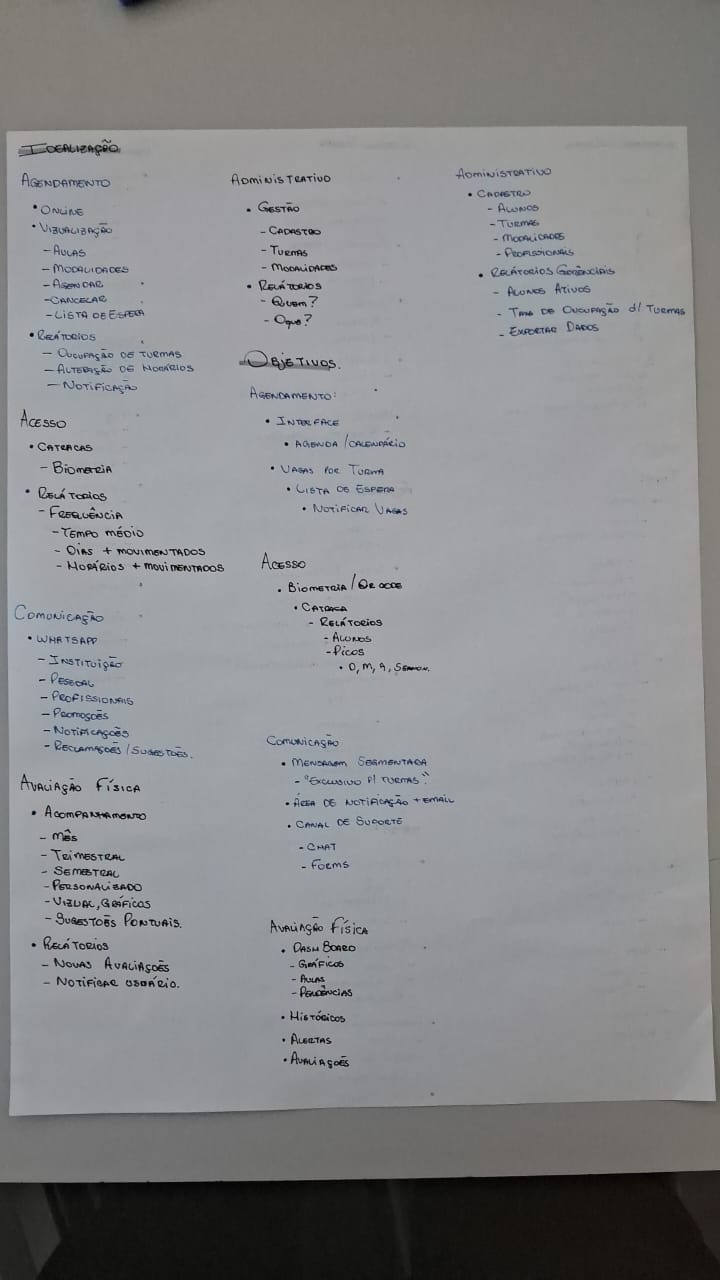 IDEALIZAÇÃO
AGENDAMENTO
• ONLINE
• VIZUALIZAÇÃO
- AULAS
- MODALIDADES
- AGENDAR
- CANCELAR
- LISTA DE ESPERA
• RELÁTORIOS
- OUCUPAÇÃO DE TURMAS
- ALTERAÇÃO DE HORÁRIOS
- NOTIFICAÇÃO
ACESSO
• CATRACAS
- BIOMETRIA
• RELÁTORIOS
- FREQUÊNCIA
- TEMPO MÉDIO
- DIAS + MOVIMENTADOS
- HORÁRIOS + MOVIMENTADOS
COMUNICAÇÃO
• WHATSAPP
- INSTITUIÇÃO
- PESSOAL
- PROFISSIONAIS
- PROMOÇÕES
- NOTIFICAÇÕES
- RECLAMAÇÕES / SUGESTÕES.
AVALIAÇÃO FÍSICA
• ACOMPANHAMENTO
- MÊS
- TRIMESTRAL
- SEMESTRAL
- PERSONALIZADO
- VIZUAL, GRÁFICOS
- SUGESTÕES PONTUAIS.
• RELÁTORIOS
- NOVAS AVALIAÇÕES
- NOTIFICAR USUÁRIO.
ADMINISTRATIVO
• GESTÃO
- CADASTRO
- TURMAS
- MODALIDADES
• RELÁTORIOS
- QUEM?
- OQUE?
OBJETIVOS.
AGENDAMENTO:
• INTERFACE
• AGENDA / CALENDÁRIO
• VAGAS POR TURMA
• LISTA DE ESPERA
• NOTIFICAR VAGAS
ACESSO
• BIOMETRIA / QR CODE
• CATRACA
- RELÁTORIOS
- ALUNOS
- PICOS
• D, M, A, SEMAN.
COMUNICAÇÃO
• MENSAGEM SEGMENTADA
- "EXCLUSIVO P/ TURMAS."
• ÁREA DE NOTIFICAÇÃO + EMAIL
• CANAL DE SUPORTE
- CHAT
- FORMS
AVALIAÇÃO FÍSICA
• DASH BOARD
- GRÁFICOS
- AULAS
- PENDÊNCIAS
• HISTÓRICOS
• ALERTAS
• AVALIAÇÕES
ADMINISTRATIVO
• CADASTRO
- ALUNOS
- TURMAS
- MODALIDADES
- PROFISSIONAIS
• RELÁTORIOS GERÊNCIAIS
- ALUNOS ATIVOS
- TAXA DE OUCUPAÇÃO d/ TURMAS
- EXPORTAR DADOS